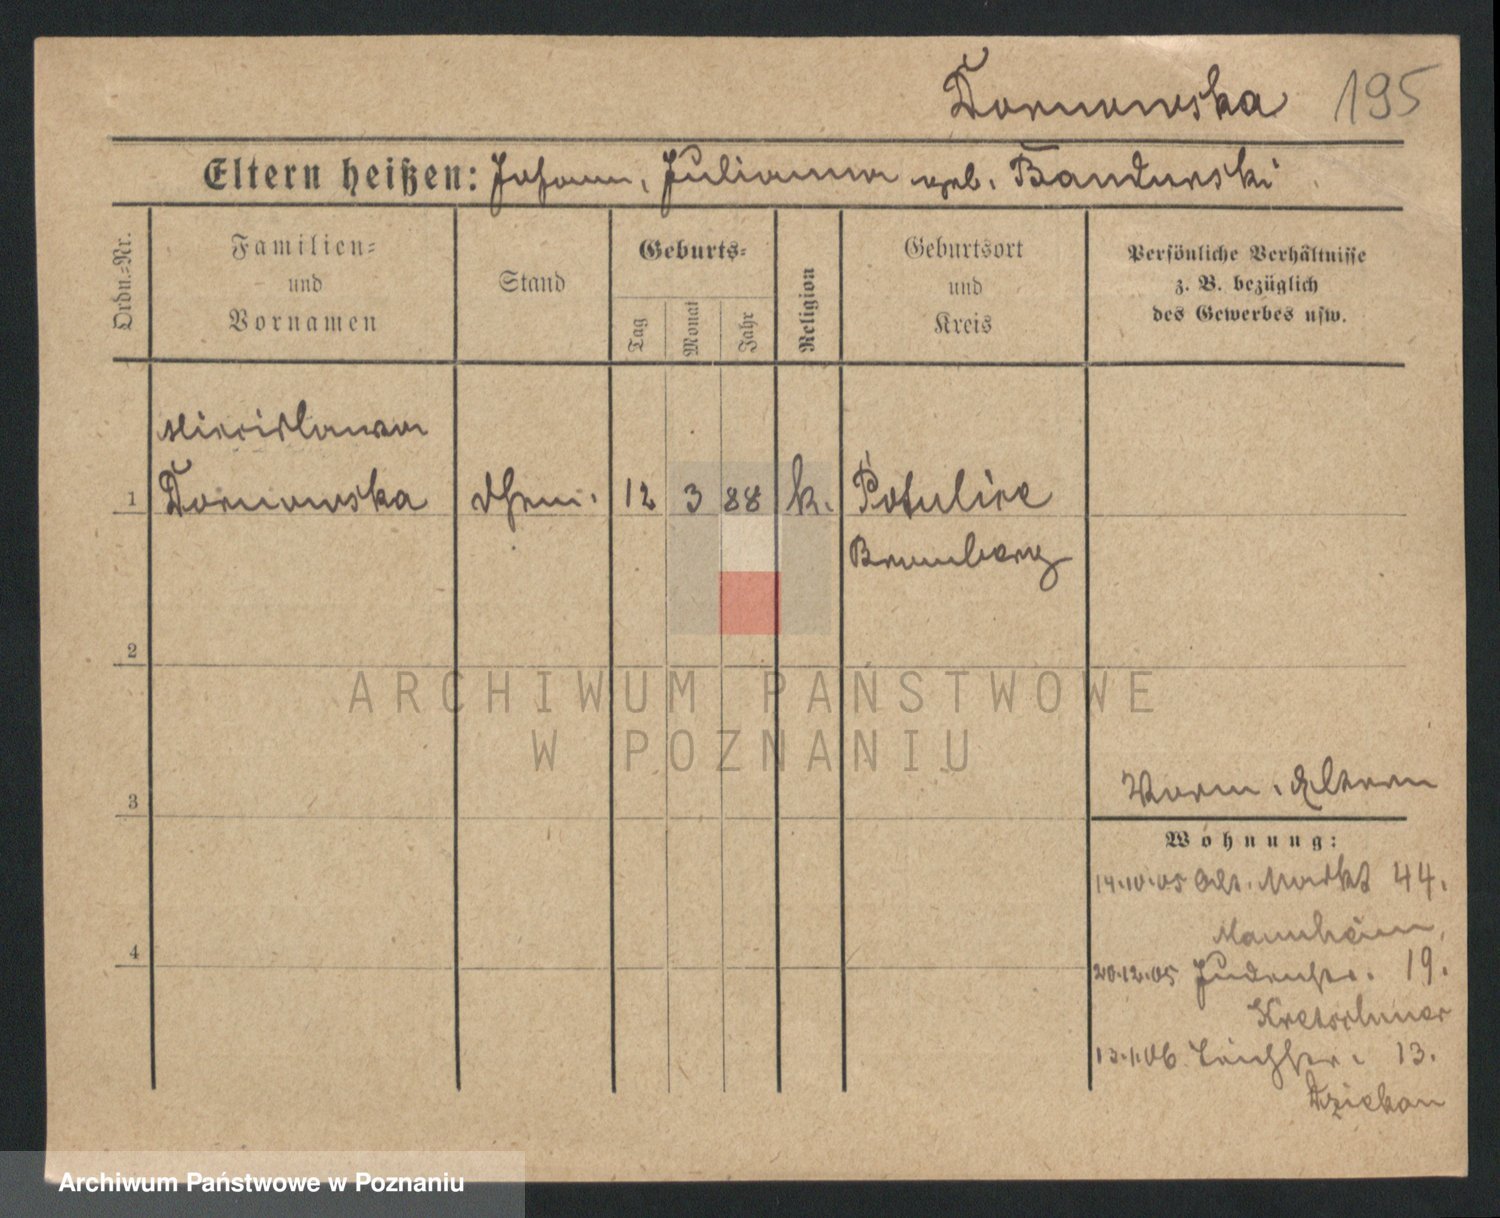 Tornowska 195
Eltern heißen: Johann, Julianna geb. Bandurski
Ordn.-Nr.
Familien-
und
Vornamen
Stand
Geburts-
Tag
Monat
Jahr
Religion
Geburtsort
und
Kreis
Persönliche Verhältnisse
z. B. bezüglich
des Gewerbes usw.
Miecislawa
1 Tornowska 12 3 88 k. Potulice
Bromberg
2
3
Vorm. Eltern
Wohnung:
14.10.05 Alt. Markt 44.
Mannheim,
4
20.12.05 Judenstr. 19.
Kretschmer
13.1.06 Teichstr. 13.
Dziekan
ARCHIWUM PAŃSTWOWE
W POZNANIU
Archiwum Państwowe w Poznaniu